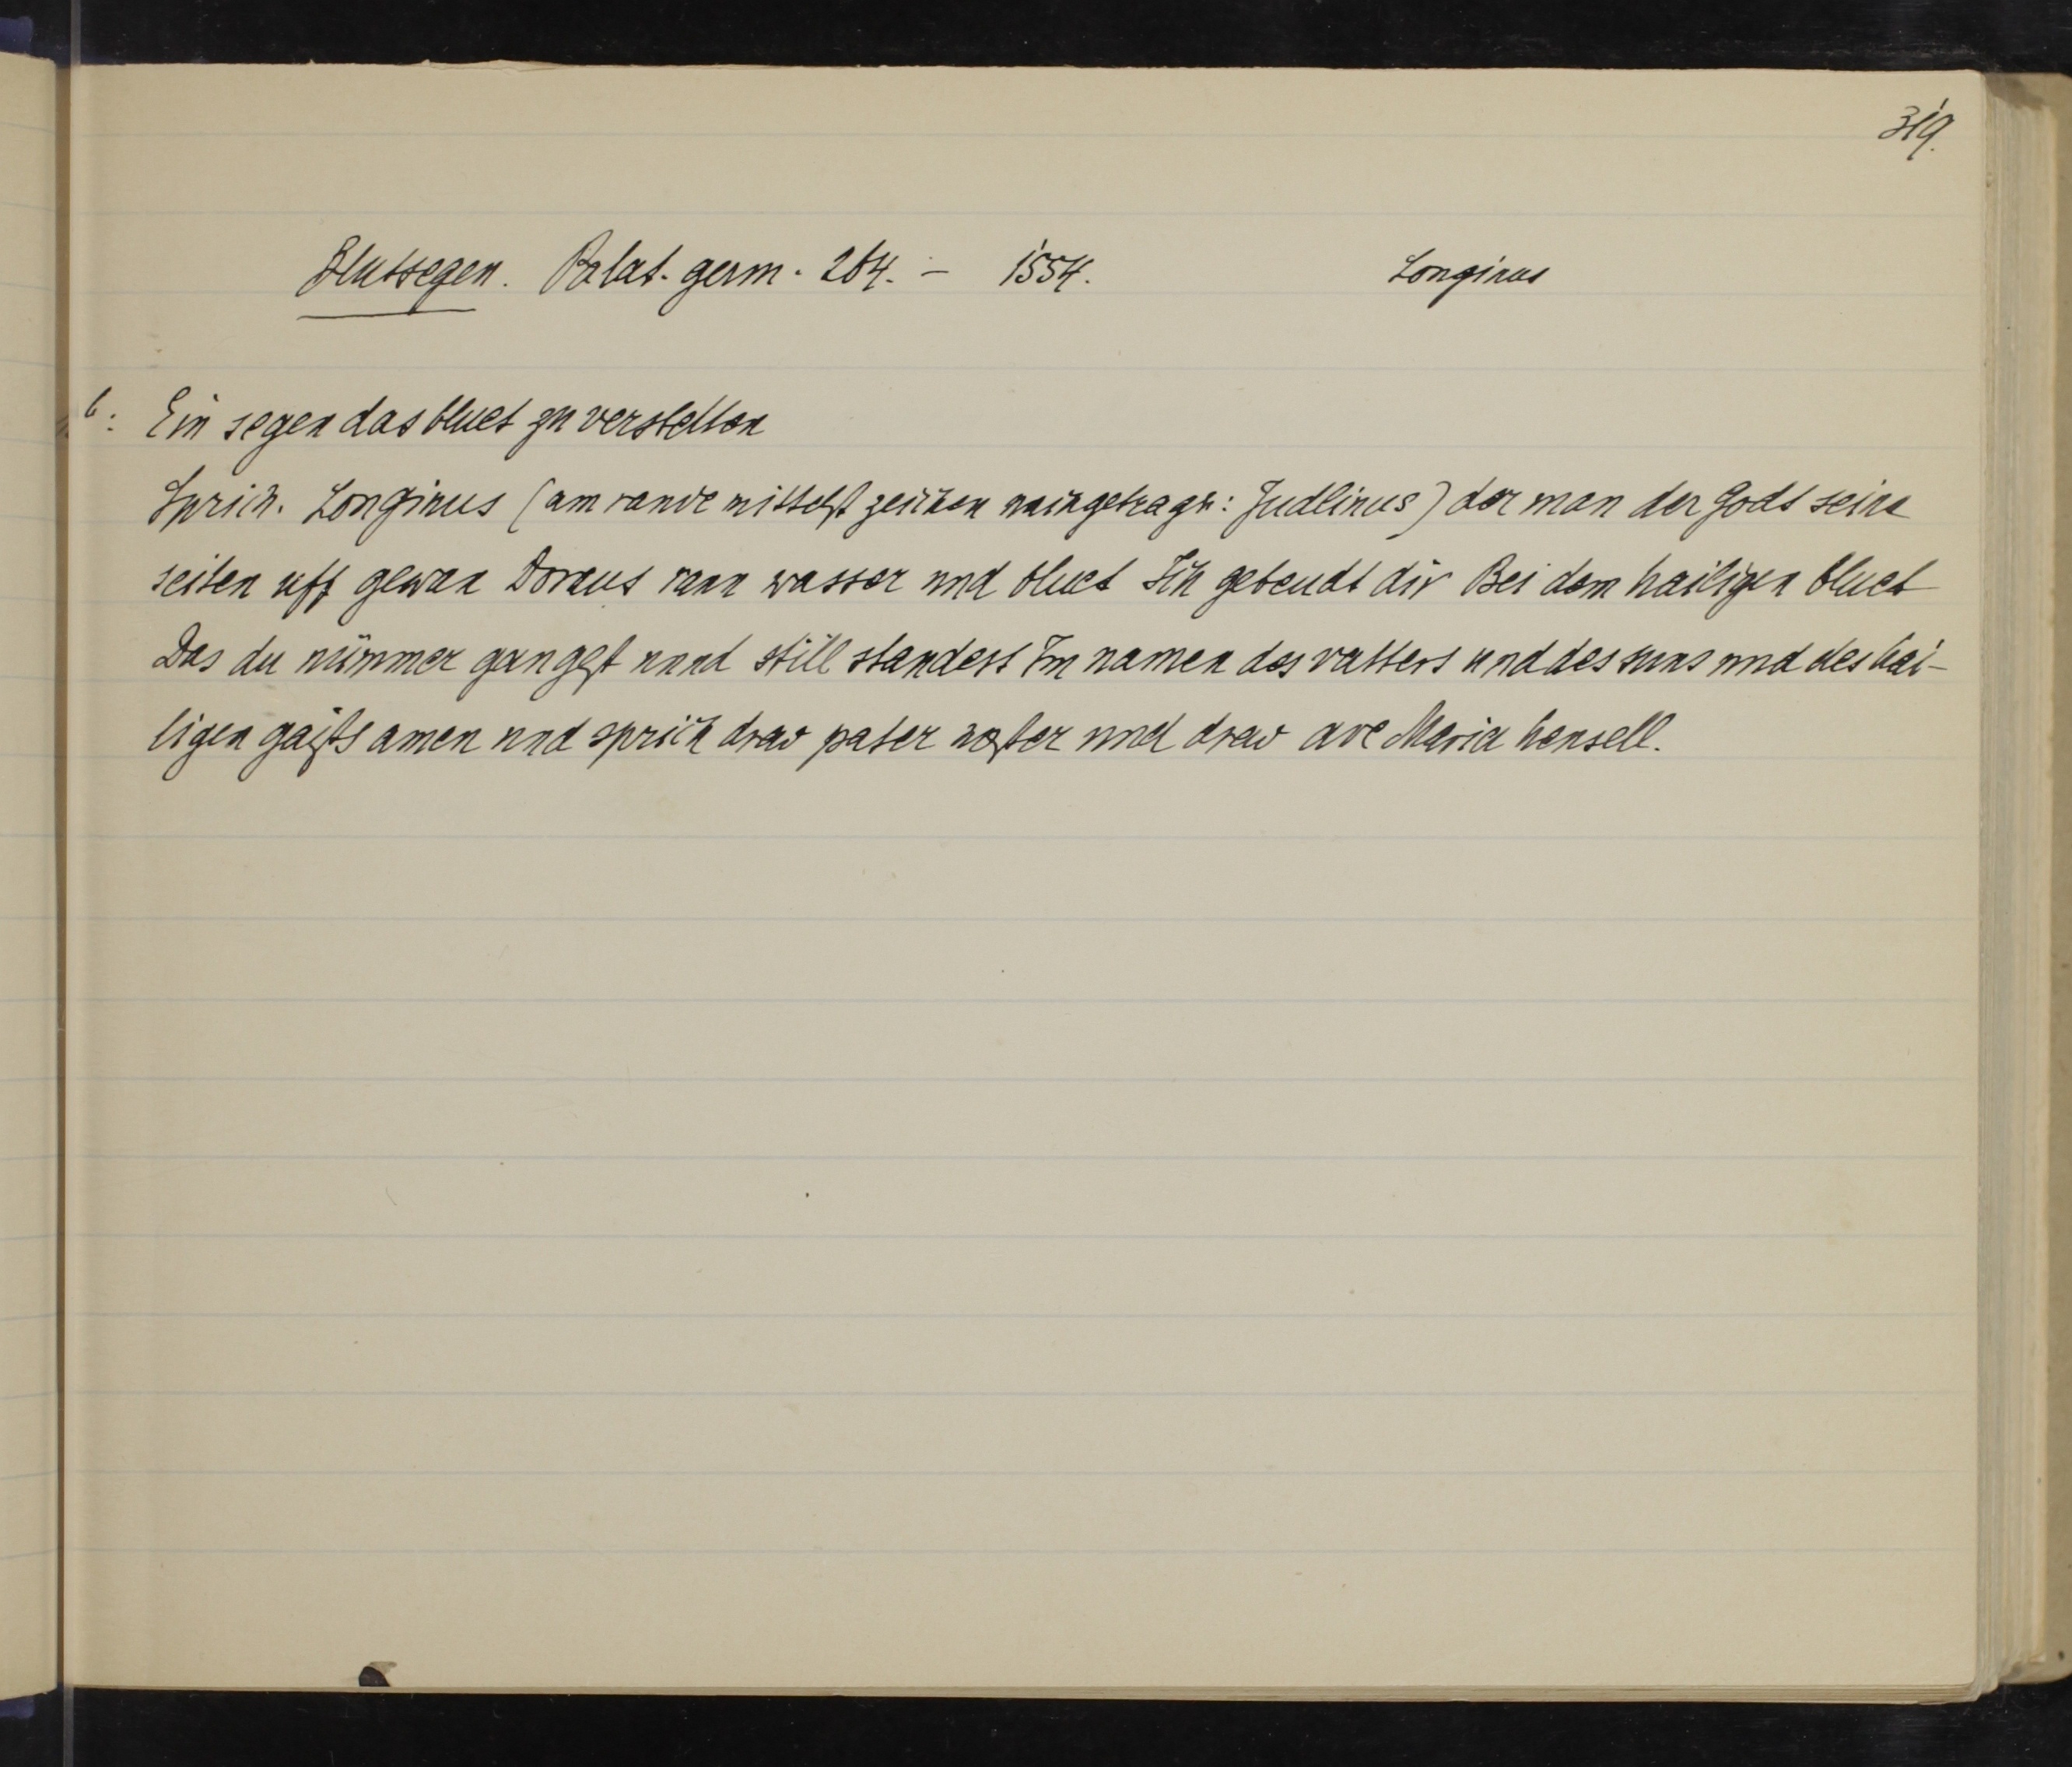 319.
Blutsegen. Palat. germ. 264. – 1554. Longinus
6: Ein segen das bluet zu verstellen
Sprich. Longinus (am rande mittelst zeichen nachgetragen: Judlinus) der man der Gott seine
seiten uff gewan Doraus rann wasser und bluet Ich gebeudt dir Bei dem hailigen bluet
Das du nümmer gangest unnd still standest Im namen des vatters und des suns und des hai-
ligen gaists amen und sprich drew pater noster und drew ave Maria hensell.